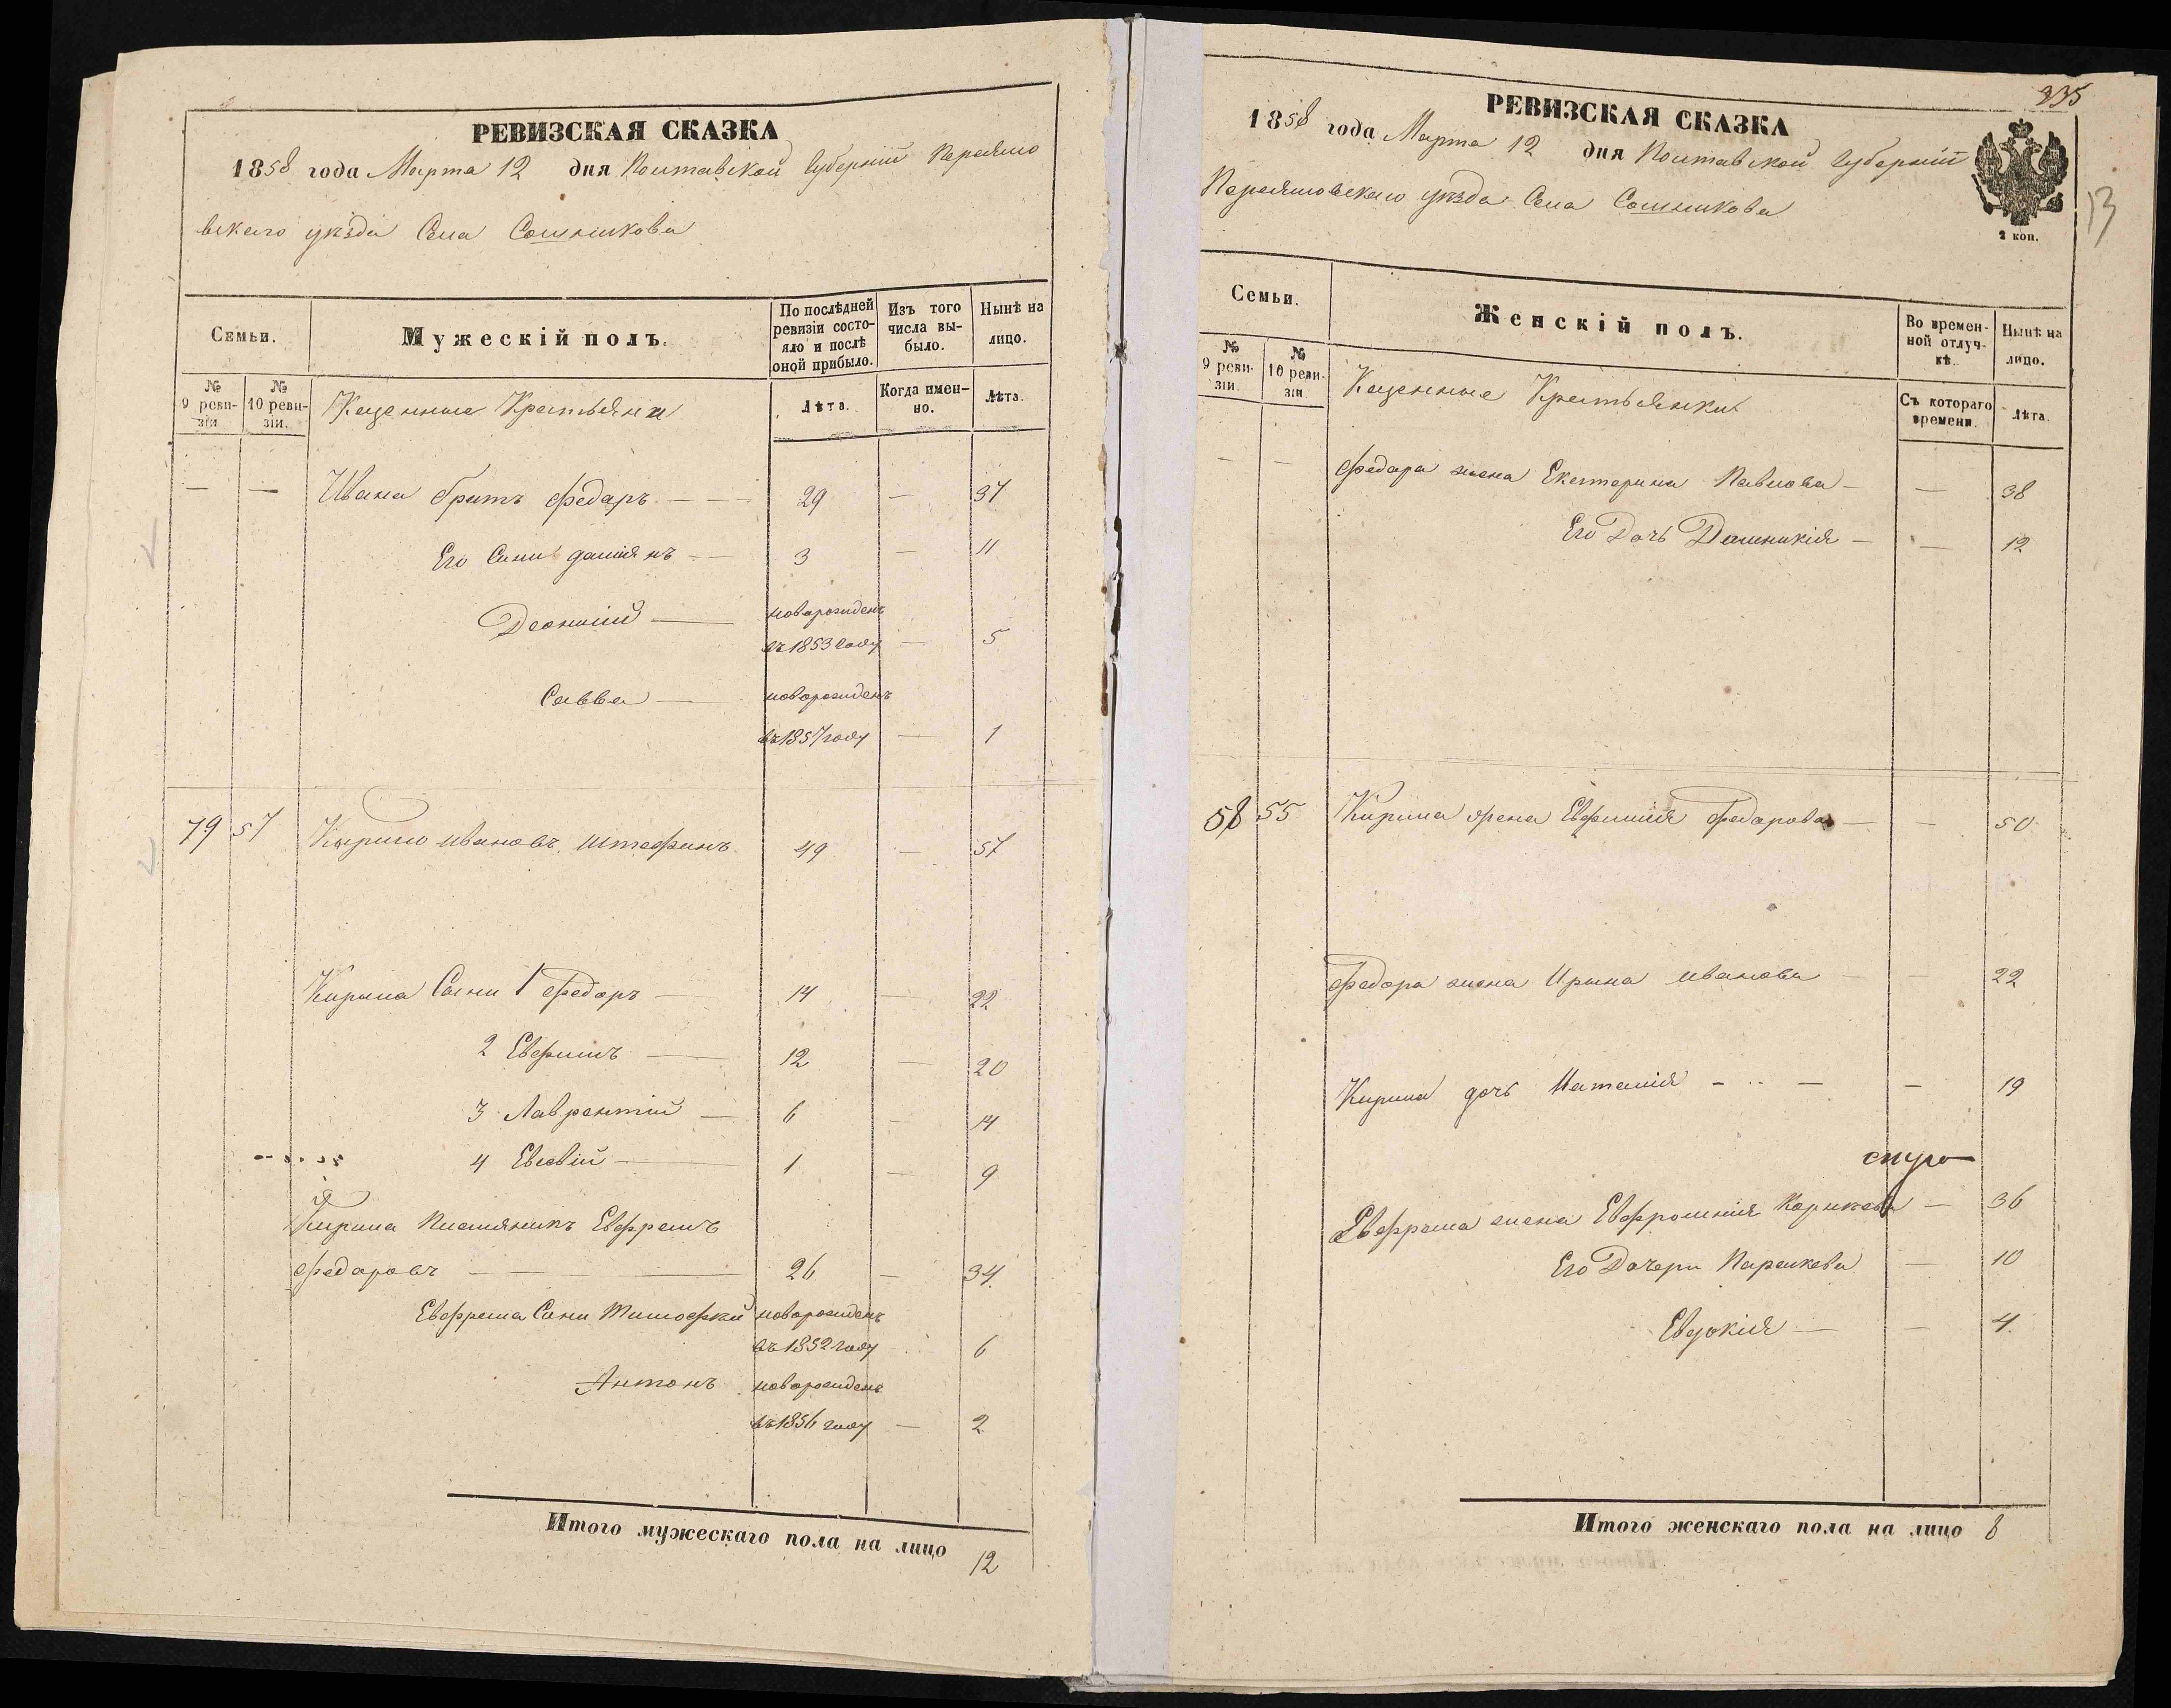 РЕВИЗСКАЯ СКАЗКА
1858 года Марта 12 дня Полтавской Губернии Переясло
вскаго уезда Села Сошникова
Семьи.
Мужескій полъ.
По послѣдней ревизіи состояло и послѣ оной прибыло.
Изъ того числа выбыло.
Нынѣ на лицо.
№ 9 ревизіи
№ 10 ревизіи.
Казенные Крестьяни
Лѣта.
Когда именно.
Лѣта.
— — Ивана братъ Федаръ — — 29 — 37
Его Сини даміянъ — 3 — 11
Деонисій — новарожденъ
въ 1853 году — 5
Савва — новарожденъ
въ 1857 году — 1
79 57 Кырило Ивановъ Штефанъ 49 — 57
Кирила Сыни 1 Федоръ — 14 — 22
2 Евфимъ — 12 — 20
3 Лаврентій — 6 — 14
4 Евсевій — 1 — 9
Кирила Племяникъ Евфремъ
Федаровъ — — 26 — 34
Евфрема Сини Тимофей новорожденъ
въ 1852 году 6
Антонъ новорожденъ
въ 1856 году — 2
Итого мужескаго пола на лицо 12
335
РЕВИЗСКАЯ СКАЗКА
1858 года Марта 12 дня Полтавской Губерніи
Переясловскаго уезда Села Сошникова
2 коп.
13
Семьи.
Женскій полъ.
Во временной отлучкѣ.
Нынѣ на лицо.
№ 9 ревизіи.
№ 10 ревизіи
Казенные Крестьянки
Съ котораго времени.
Лѣта.
— — Федара жена Екатерина Павлова — — 38
Его Дочь Домникія — — 12
58 55 Кирила жена Евфимия Федарова — — 50
Федора жена Ирина Иванова — — 22
Кирила дочь Наталія — — — 19
Евфрема жена Евфросинія — 36
Его Дочери Параскева — 10
Евдокія — — 4
Итого женскаго пола на лицо 8